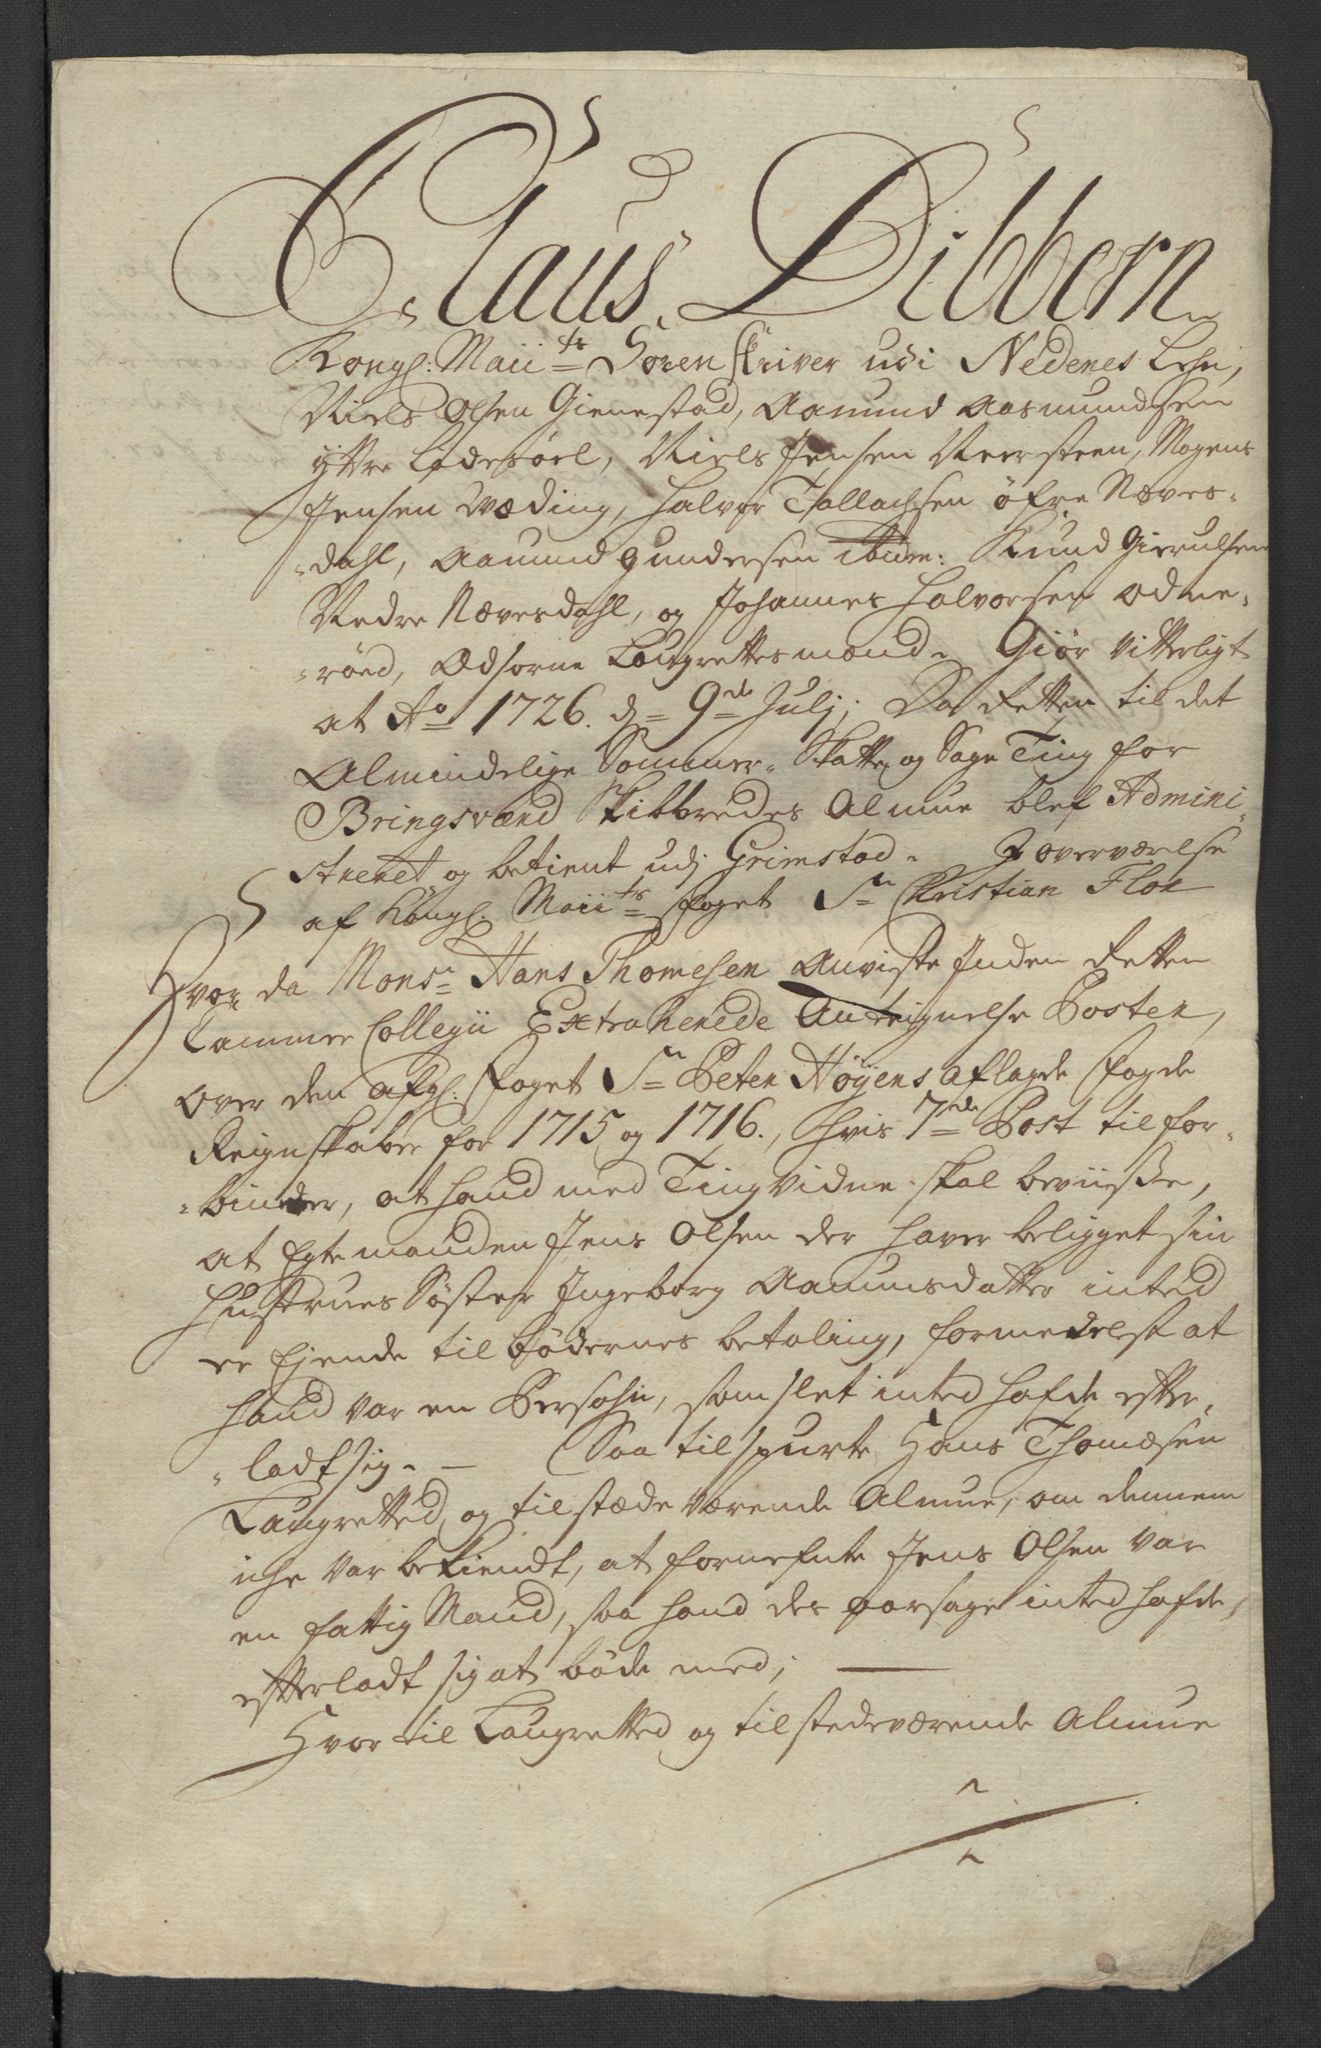 Claus Dibbern
Kongl: Maii<sup>ts</sup> Sorenskriver udi Nedenes Lehn,
Niels Olsen Gienestad, Aamund Aasmundsen
ytre Lødesøel, Niels Jensen Neersteen, Mogens
Jensen Væding, Halvor Tallachsen öfre Næves-
-dahl, Aamund Gundersen ibidem: Knud Gierulsen
Nedre Nævesdahl, og Johannes Halvorsen Odme-
-röed, Edsorne Laugrettesmænd. Giör Vitterligt
at A<sup>o</sup> 1726. d. 9<sup>de</sup> Julj; Da Retten til det
Almindelige Sommer- Skatte og Sage Ting for
Bringsværd Skibbredes Almue blef Admini-
streret og betient udj Grimstad. I overværelse
af Kongl. Maii<sup>ts</sup> Foget S<sup>r</sup> Christian Flor
Hvor da Mons<sup>r</sup> Hans Thomesen Anviste Inden Retten
Cammer Collegii Extraherede Anteignelse Poster,
over den afgl. Foget S<sup>r</sup> Peter Höyers aflagde Fogde
Reignskaber for 1715 og 1716., hvis 7<sup>de</sup> Post til for-
-binder, at hand med Tingvidne skal beviisse,
at Egtemanden Jens Olsen der haver beligget sin
Hustrues Søster Ingeborg Aamunsdatter inted
er Ejende til bödernes betaling, formedelst at
hand var en Persohn, som slet inted hafde efter-
-ladt sig. - Saa tilspurte Hans Thomæsen
Laugretted og tilstæde værende Almue, om dennem
iche var bekiendt, at fornefnte Jens Olsen var
en fattig Mand, saa hand des aarsage inted hafde,
efterladt sig at böde med;
Hvortil Laugretted og tilstedeværende Almue